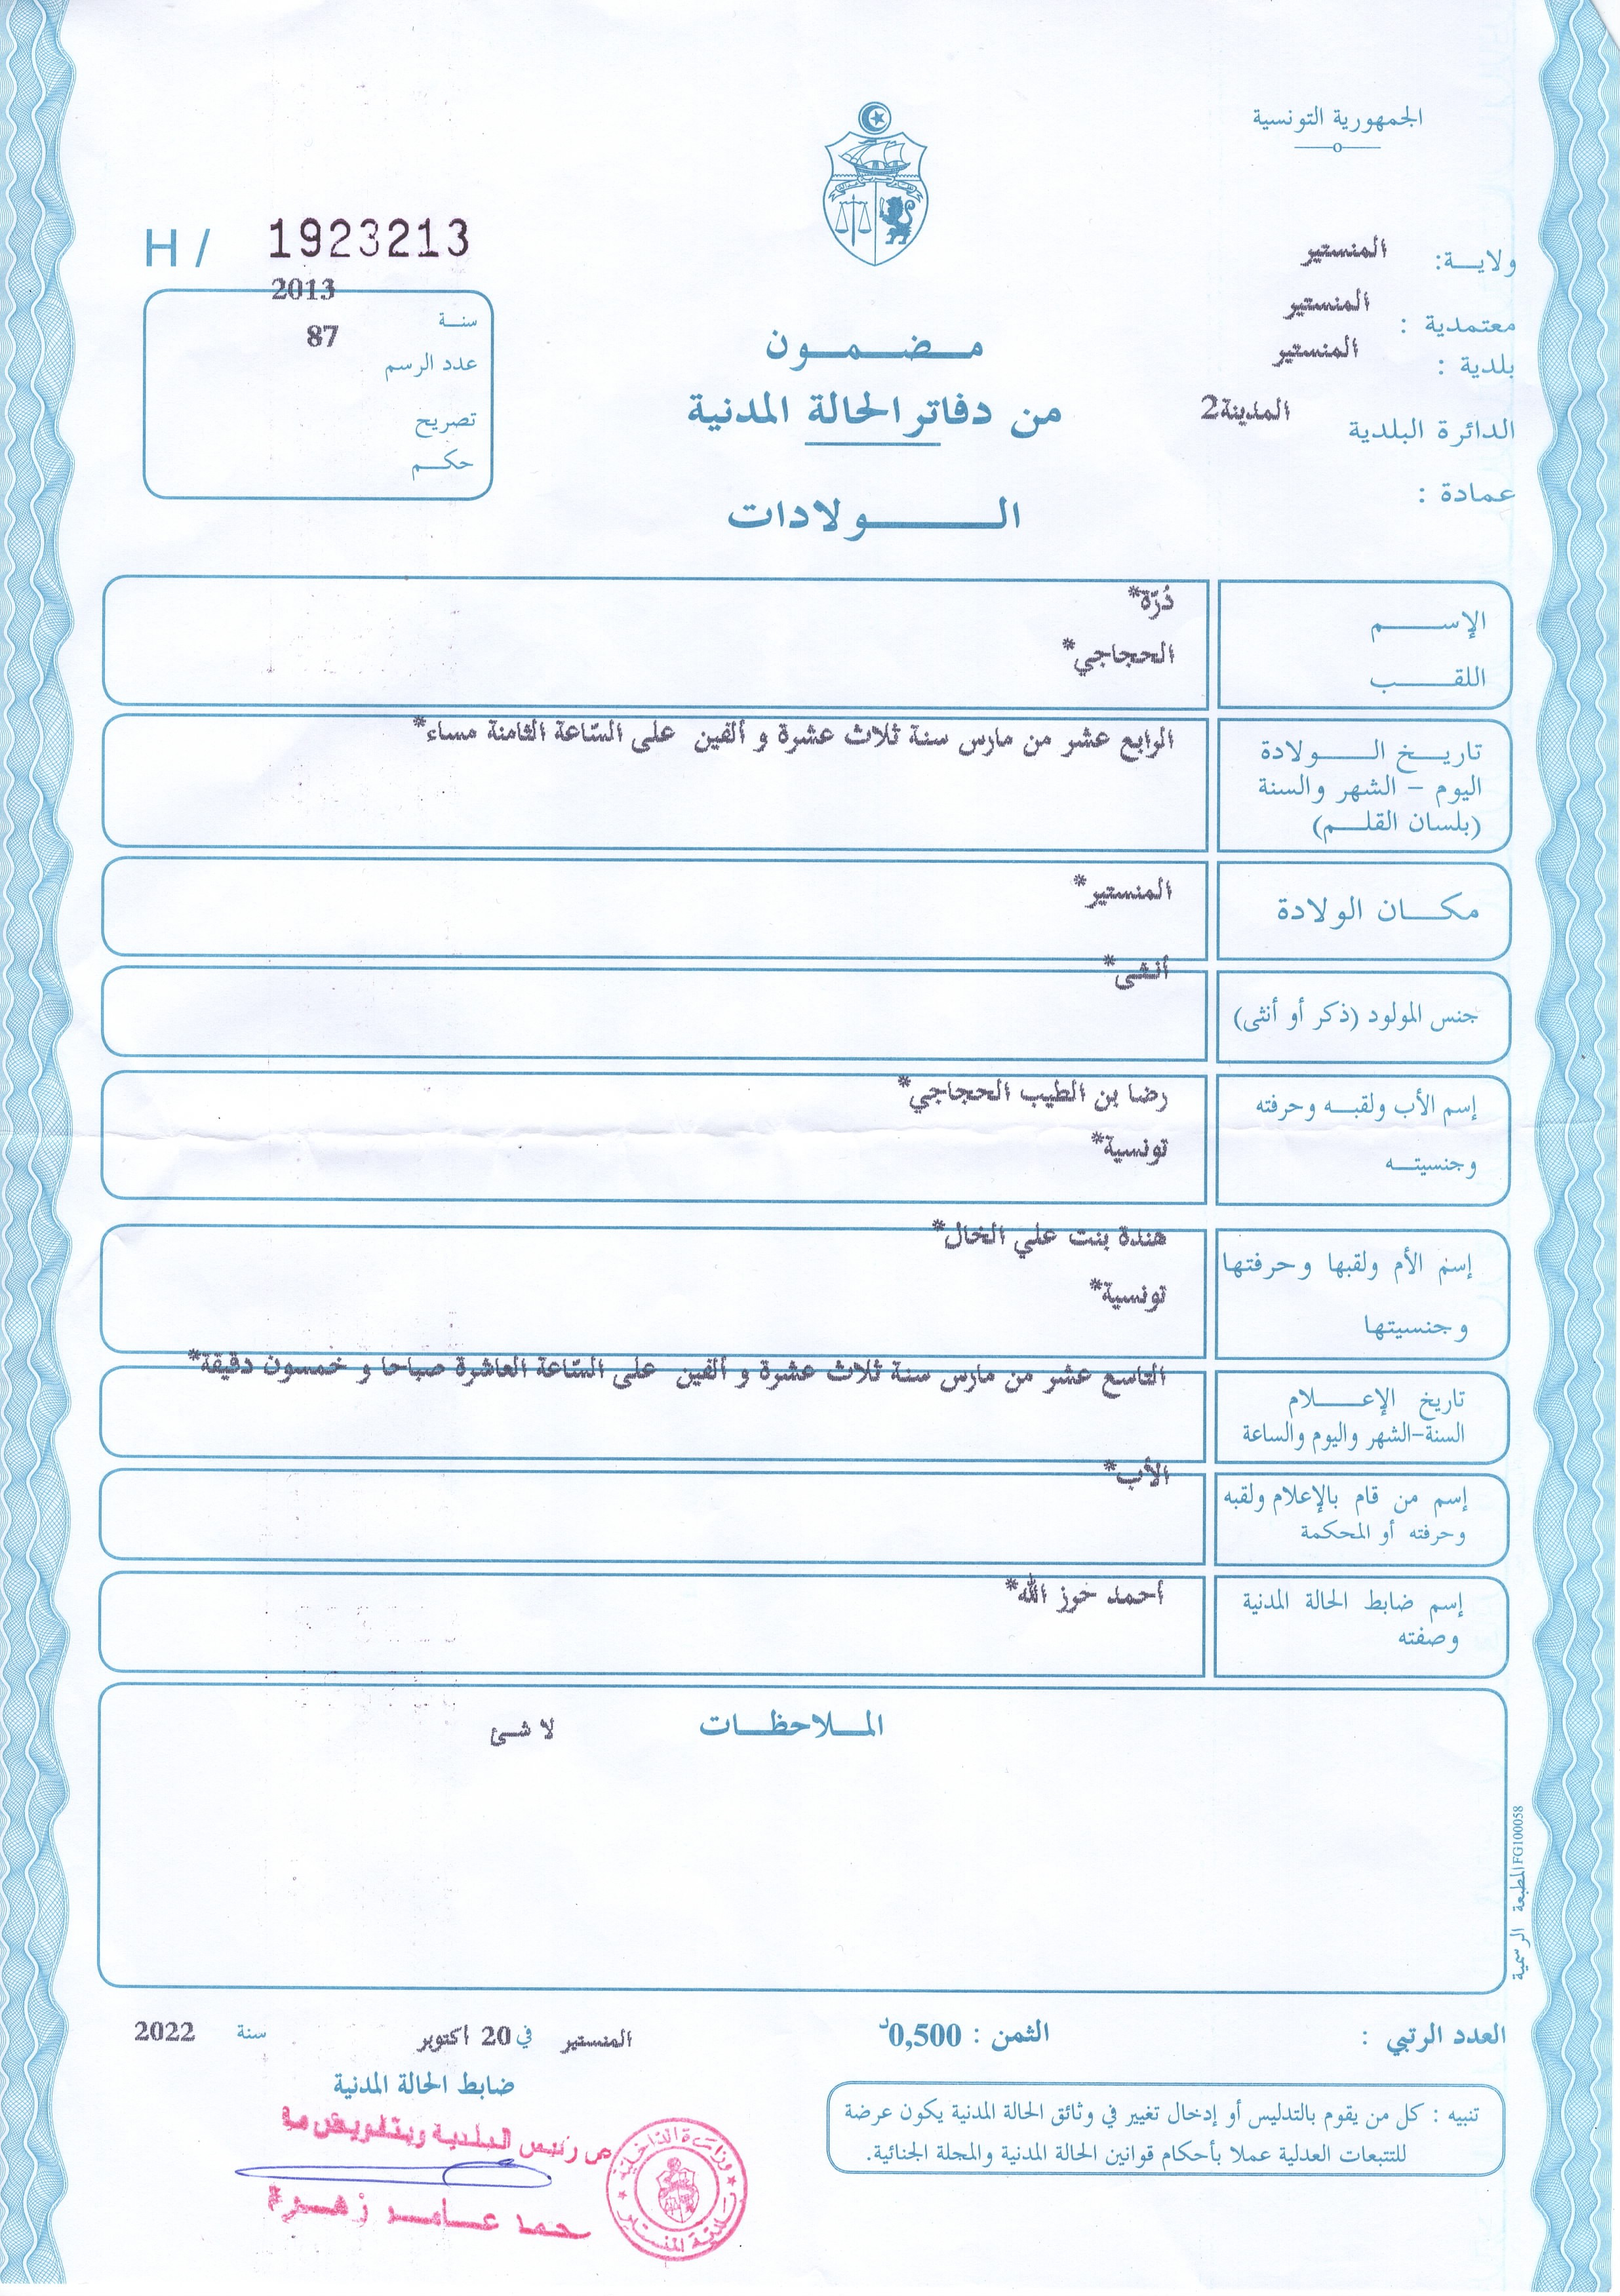 الجمهورية التونسية
ولايـــة: المنستير
معتمدية : المنستير
بلدية : المنستير
الدائرة البلدية المدينة2
عمادة :
H / 1923213
سنــة 2013
عدد الرسم 87
تصريح
حكــم
مـــضـــمـــون
من دفاتر الحالة المدنية
الـــــولادات
الإســــــم دُرّة*
اللقـــــب الحجاجي*
تاريــخ الـــــولادة الرابع عشر من مارس سنة ثلاث عشرة و ألفين على السّاعة الثامنة مساء*
اليوم – الشهر والسنة
(بلسان القلــم)
مكـــان الولادة المنستير*
جنس المولود (ذكر أو أنثى) أنثى*
إسم الأب ولقبــه وحرفته رضا بن الطيب الحجاجي*
وجنسيتــه تونسية*
إسم الأم ولقبها وحرفتها هندة بنت علي الخال*
وجنسيتها تونسية*
تاريخ الإعــــلام التاسع عشر من مارس سنة ثلاث عشرة و ألفين على السّاعة العاشرة صباحا و خمسون دقيقة*
السنة–الشهر واليوم والساعة
إسم من قام بالإعلام ولقبه الأب*
وحرفته أو المحكمة
إسم ضابط الحالة المدنية أحمد خوز الله*
وصفته
المــلاحظــات
لا شئ
المطبعة الرسمية FG100058
العدد الرتبي :
الثمن : 0,500د
المنستير في 20 اكتوبر سنة 2022
ضابط الحالة المدنية
تنبيه : كل من يقوم بالتدليس أو إدخال تغيير في وثائق الحالة المدنية يكون عرضة
للتتبعات العدلية عملا بأحكام قوانين الحالة المدنية والمجلة الجنائية.
عن رئيس البلدية وبتفويض منه
عـامـر زهـرة
وزارة الداخلية
بلدية المنستير